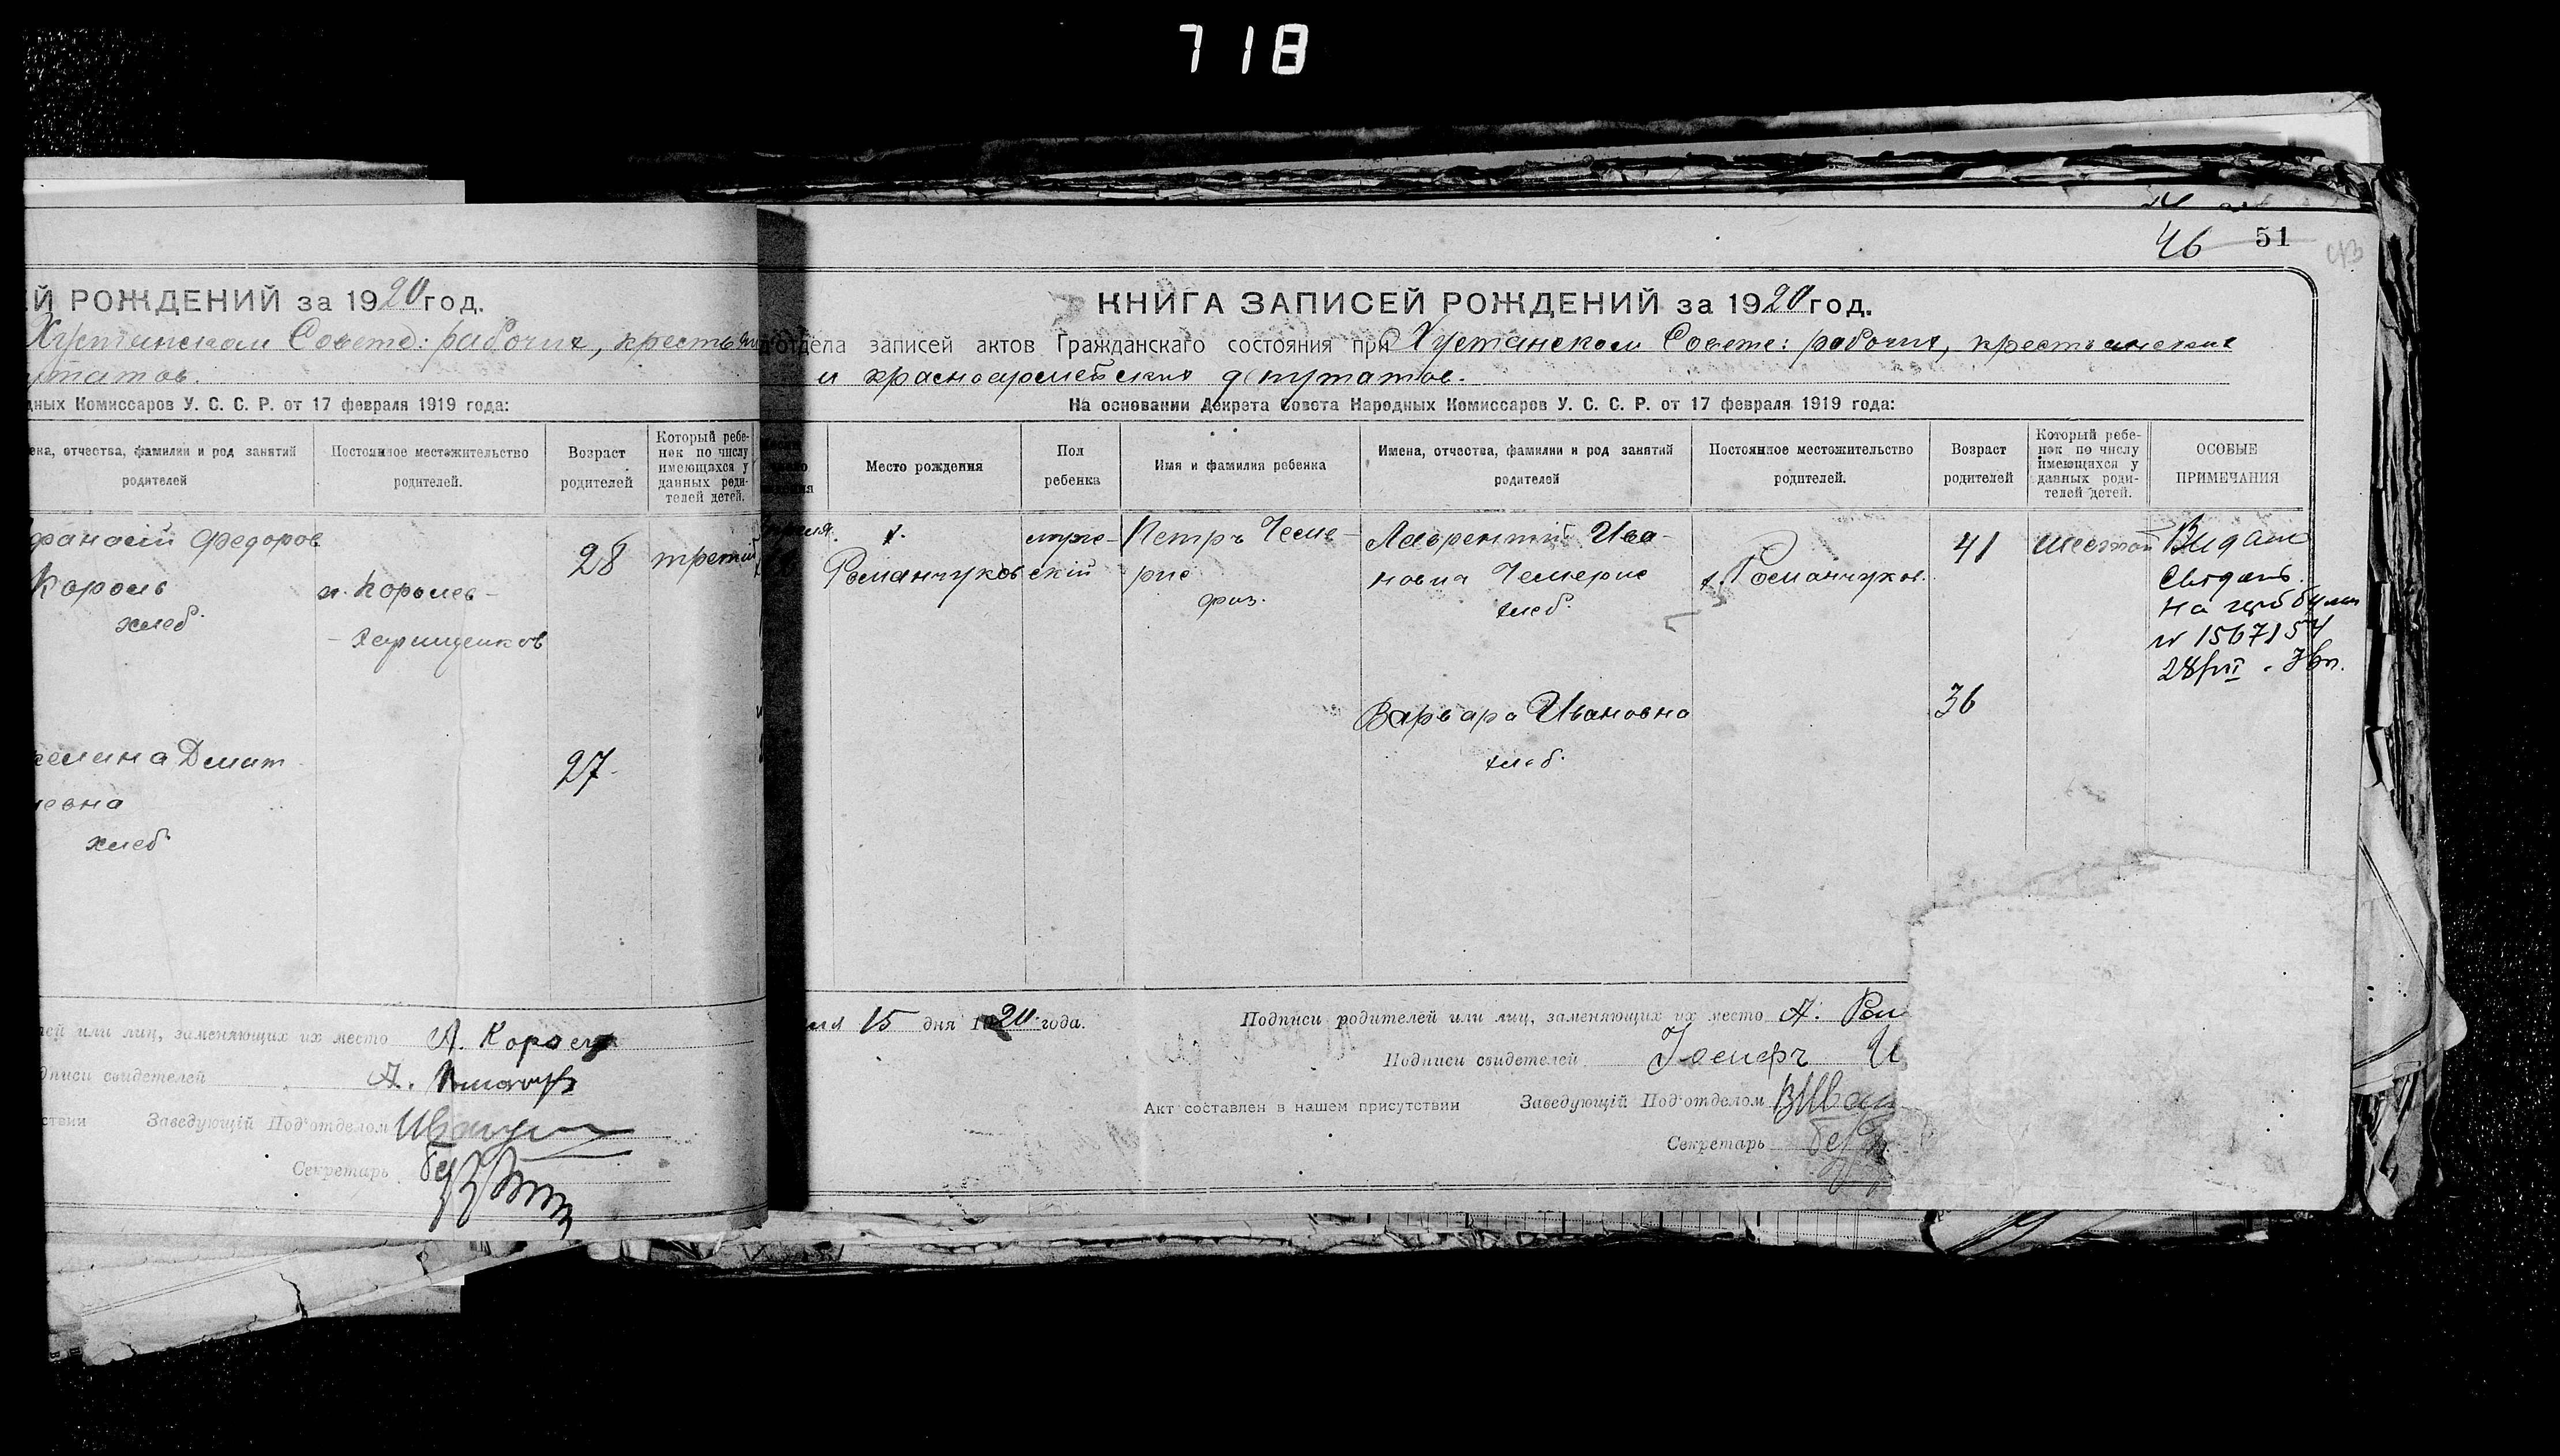 718
46 51
43
Й РОЖДЕНИЙ за 1920 год.
Хустянском Совете: рабочих, крестьян
утатов.
дных Комиссаров У. С. С. Р. от 17 февраля 1919 года:
ена, отчества, фамилии и род занятий родителей
Постоянное местожительство родителей.
Возраст родителей
Который ребенок по числу имеющихся у данных родителей детей.
фанасий Федоров
Король
хлеб.
х. Королев-
-Харищенков
28
третий
Димит
евна
хлеб
27.
лей или лиц, заменяющих их место А. Король
дписи свидетелей А.
ствии Заведующій Под'отделом
Секретарь
КНИГА ЗАПИСЕЙ РОЖДЕНИЙ за 1920 год.
отдела записей актов Гражданскаго состояния при Хустянском Совете: рабочих, крестьянских
и красноармейских депутатов.
На основании Декрета Совета Народных Комиссаров У. С. С. Р. от 17 февраля 1919 года:
Место рождения
Пол ребенка
Имя и фамилия ребенка
Имена, отчества, фамилии и род занятий родителей
Постоянное местожительство родителей.
Возраст родителей
Который ребенок по числу имеющихся у данных родителей детей.
ОСОБЫЕ ПРИМЕЧАНИЯ
х.
Романчуковский
муже-
Петръ Чеме-
рис
Лаврентий Ива-
нович Чемерис
хлеб.
х. Романчуков.
41
шестой
Видано
Свідоц.
на
№ 1567154
Варвара Ивановна
хлеб.
36
15 дня 1920 года.
Подписи родителей или лиц, заменяющих их место А. Ром
Подписи свидетелей Іосифъ И
Акт составлен в нашем присутствии Заведующій Под'отделом
Секретарь